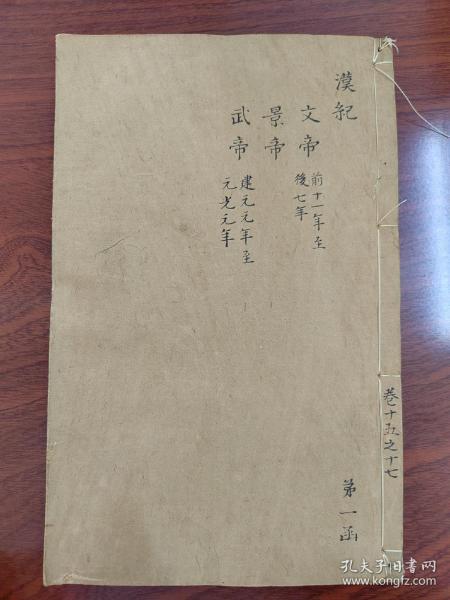 漢紀
文帝
前十一年至
後七年
景帝
武帝
建元元年至
元光元年
第一函
卷十五之十七
孔夫子旧书网
www.kongfz.com